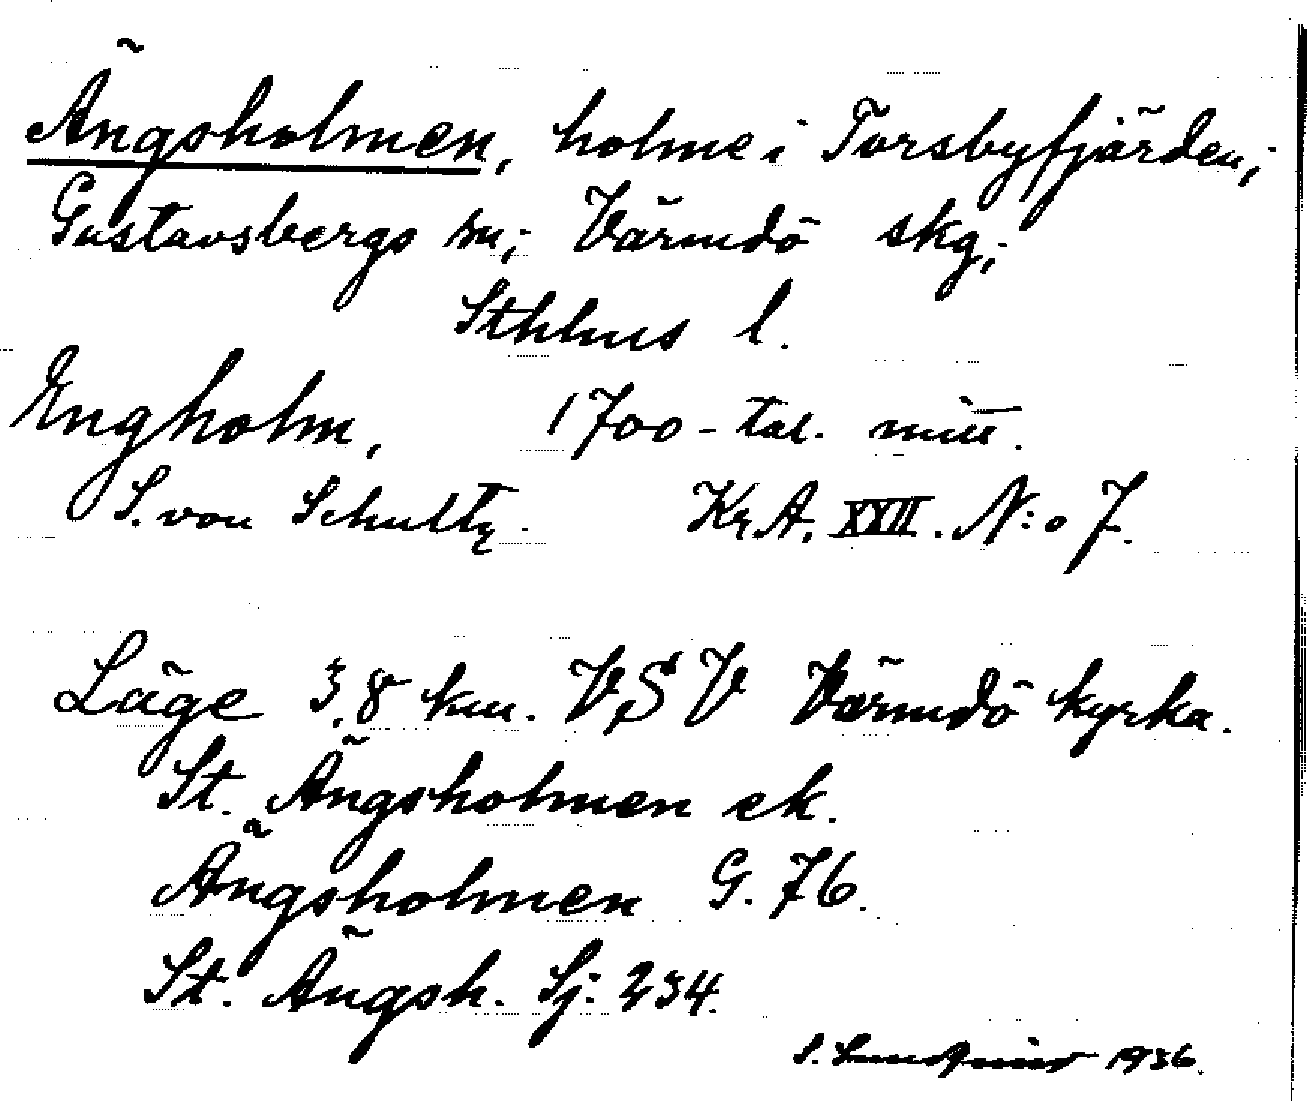 Ängsholmen, holme i Torsbyfjärden,
Gustavsbergs sn; Värmdö skg;
Sthlms l.
Engholm, 1700-tal. mitt.
S. von Schultz. Kr A, XXII. N:o 7.
Läge 3,8 km. VSV Värmdö kyrka.
St. Ängsholmen ek.
Ängsholmen G. 76.
St. Ängsh. Sj: 234.
S. Lundqvist 1936.